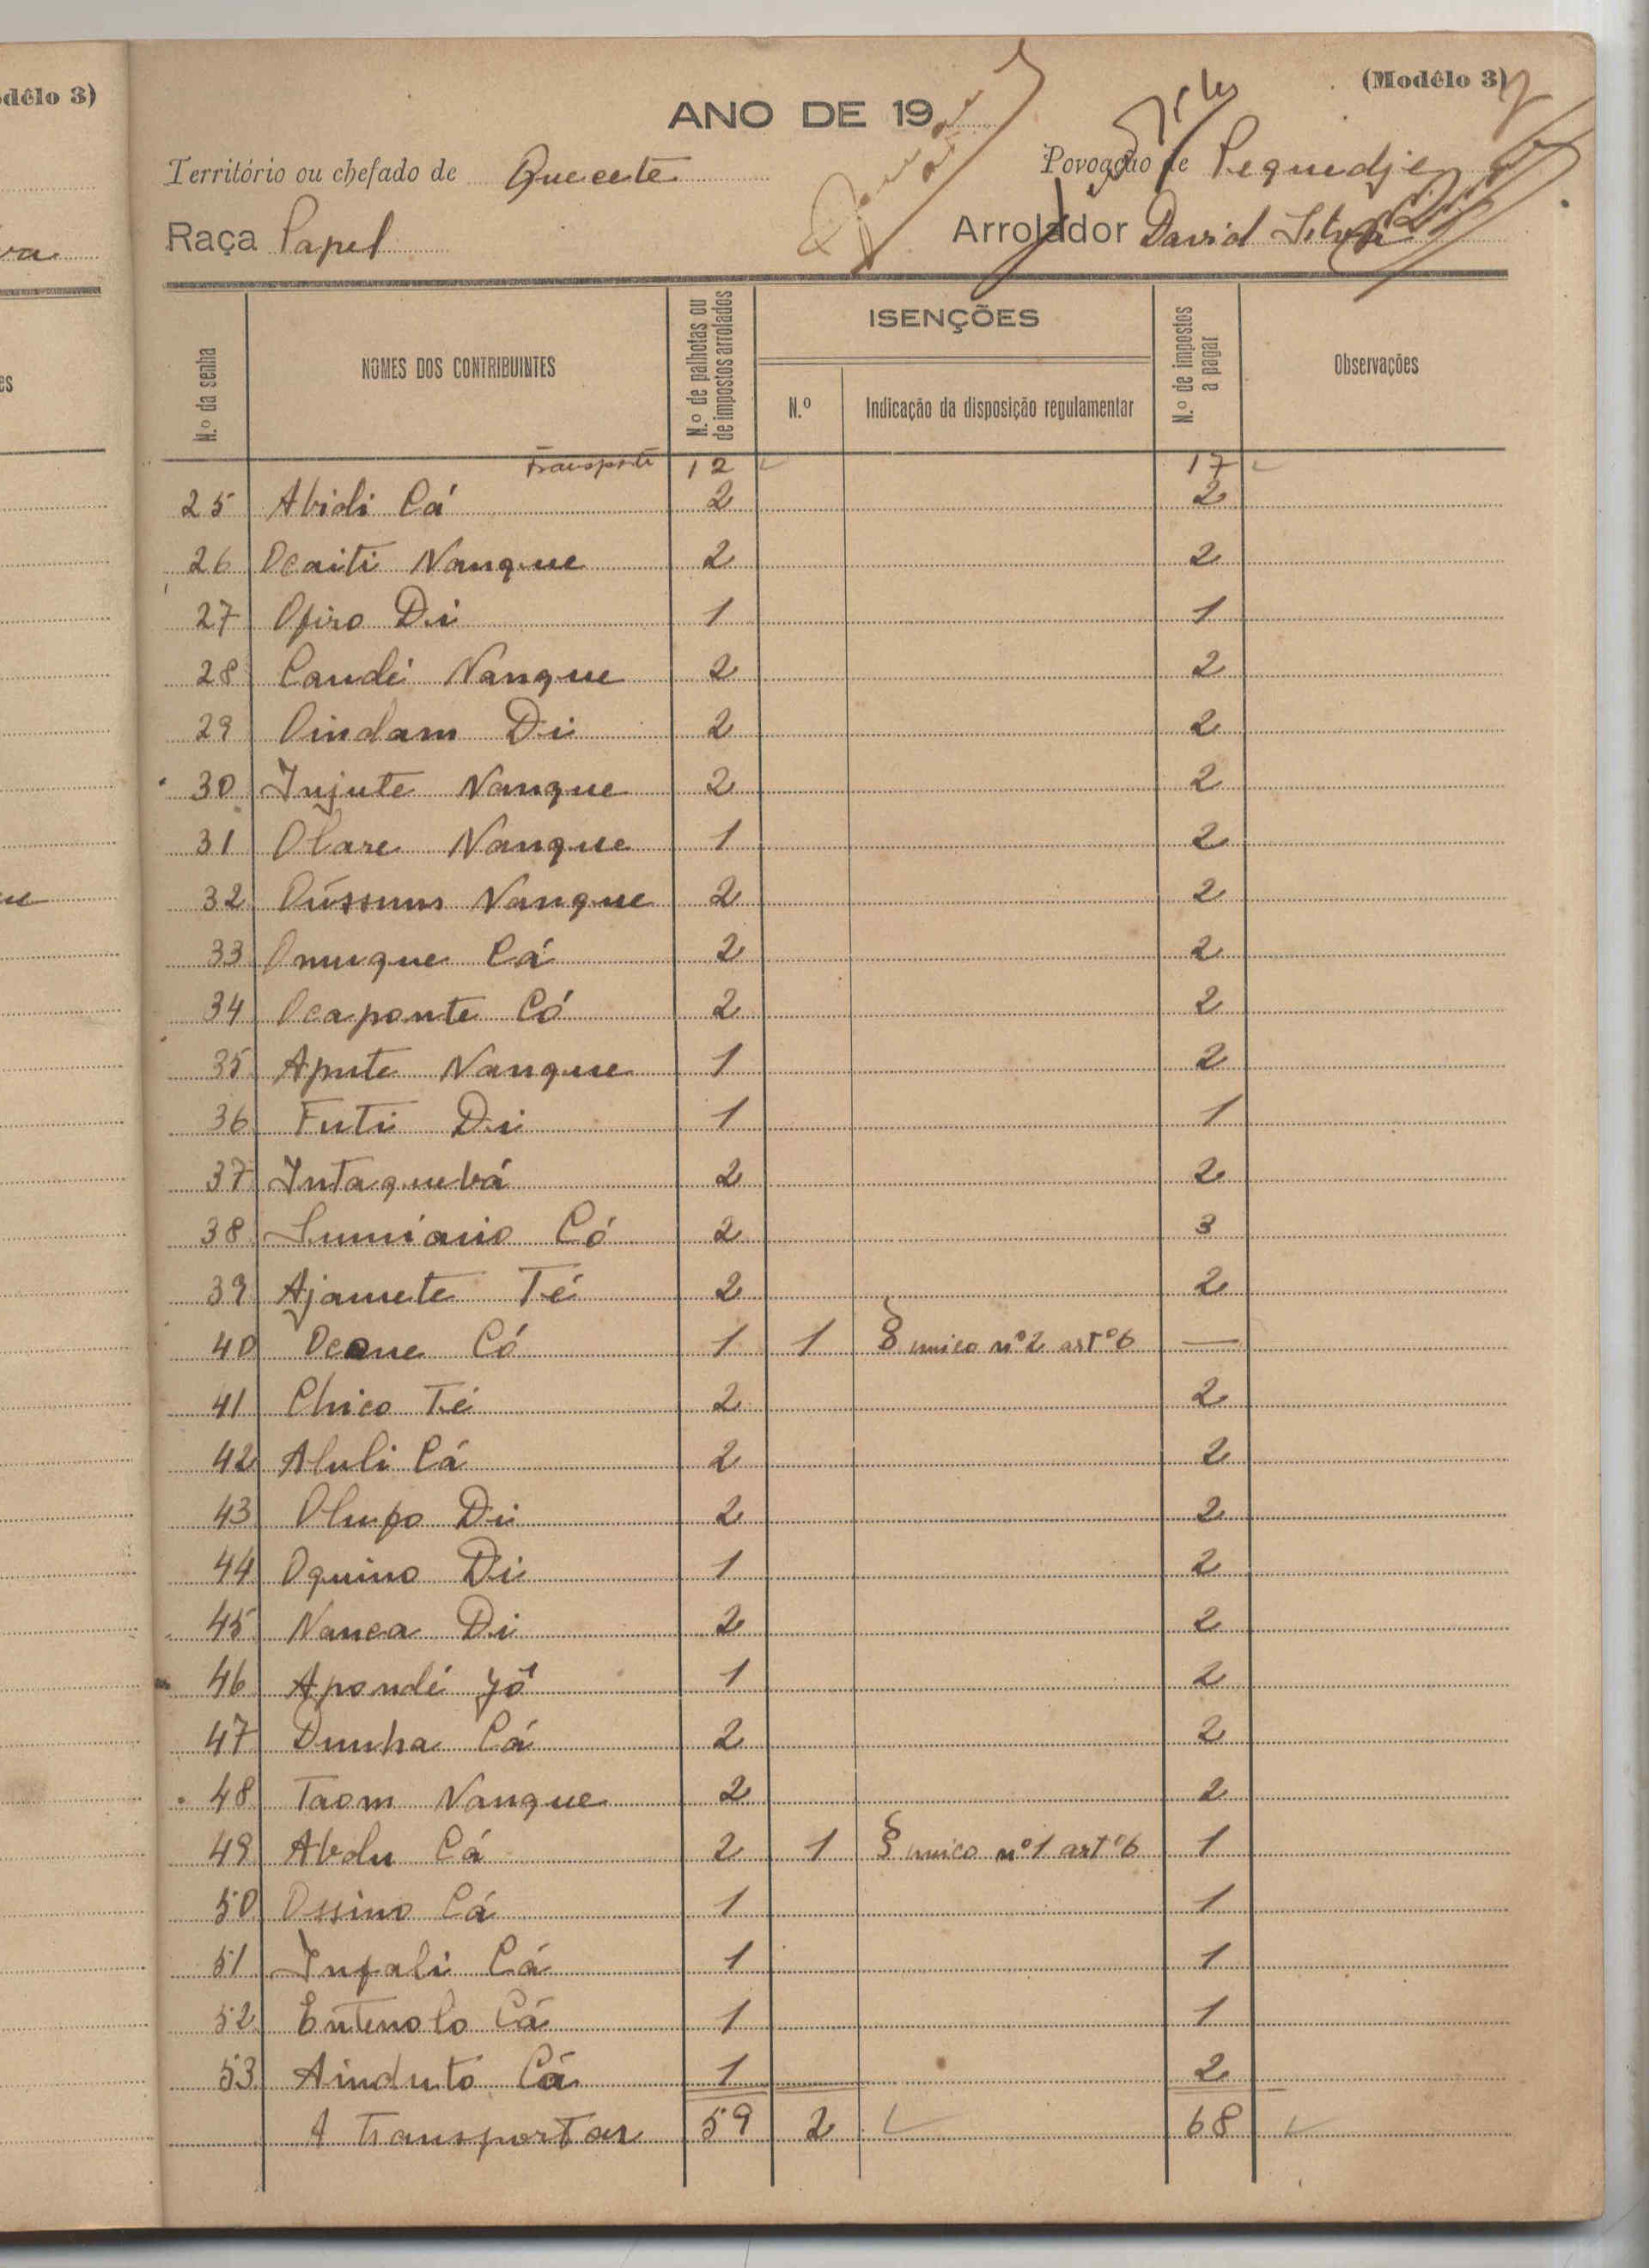 dêlo 3)
(Modêlo 3)
ANO DE 19
Território ou chefado de Quecete Povoação de Pequedje
Raça Papel Arrolador David Silva
N.º da senha
NOMES DOS CONTRIBUINTES
N.º de palhotas ou de impostos arrolados
ISENÇÕES
N.º
Indicação da disposição regulamentar
N.º de impostos a pagar
Observações
Transporte 12 17
25 Abidi Cá 2 2
26 Ocaiti Nanque 2 2
27 Ofiro Di 1 1
28 Candé Nanque 2 2
29 Oindam Di 2 2
30 Injute Nanque 2 2
31 Olare Nanque 1 2
32 Nanque 2 2
33 Onuque Cá 2 2
34 Ocaponte Có 2 2
35 Apute Nanque 1 2
36 Futi Di 1 1
37 Intaquebá 2 2
38 Có 2 3
39 Ajamete Té 2 2
40 Ocane Có 1 1 § unico nº 2 artº 6 —
41 Chico Té 2 2
42 Aluli Cá 2 2
43 Olufo Di 2 2
44 Oquino Di 1 2
45 Nanca Di 2 2
46 Apondé Jó 1 2
47 Dunha Cá 2 2
48 Taom Nanque 2 2
49 Abdu Cá 2 1 § unico nº 1 artº 6 1
50 Ossino Cá 1 1
51 Infali Cá 1 1
52 Entenolo Cá 1 1
53 Ainduto Cá 1 2
A Transportar 59 2 68